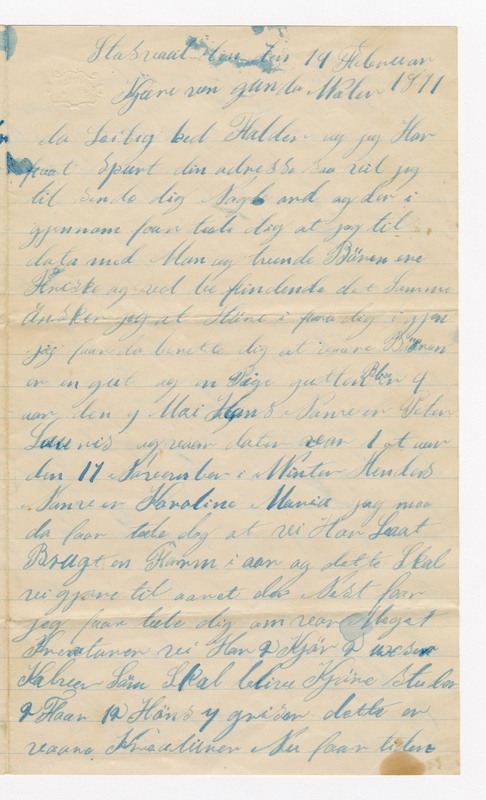 den 19 Februar
1871
Kjære ven gunda Moler
da Leilig hed Falder og jeg Har
faat Spurt din adresse saa vil jeg
til sende dig Nogle ord og der i
gjennom faar tæle dig at jeg til
data med Man og tvende Bören ere
Friske og vel be findende det Samme
Änsker jeg at Höre i fraa dig igjen
jeg faar da berette dig at vaare Bören
er en gut og en Pige gutten Blev 4
aar den 7 Mai Hans Namn er Peter
Lauvis og vaar dater var 1 at aar
den 17 November i Winter Henders
Namn er Karoline Maria jeg maa
da faar tæle dig at vi Har Laat
Brugt en Farm i aar og dette Skal
vi gjøre til aaret der Nest faar
jeg faar tæle dig om vaar Meget
Kreaturer vi Har 2 Kjör 2
Kalver Som Skal blive Kjöre Stuler
2 Faar 12 Höns 7 griser dette er
vaare Kreaturer Nu faar tiden